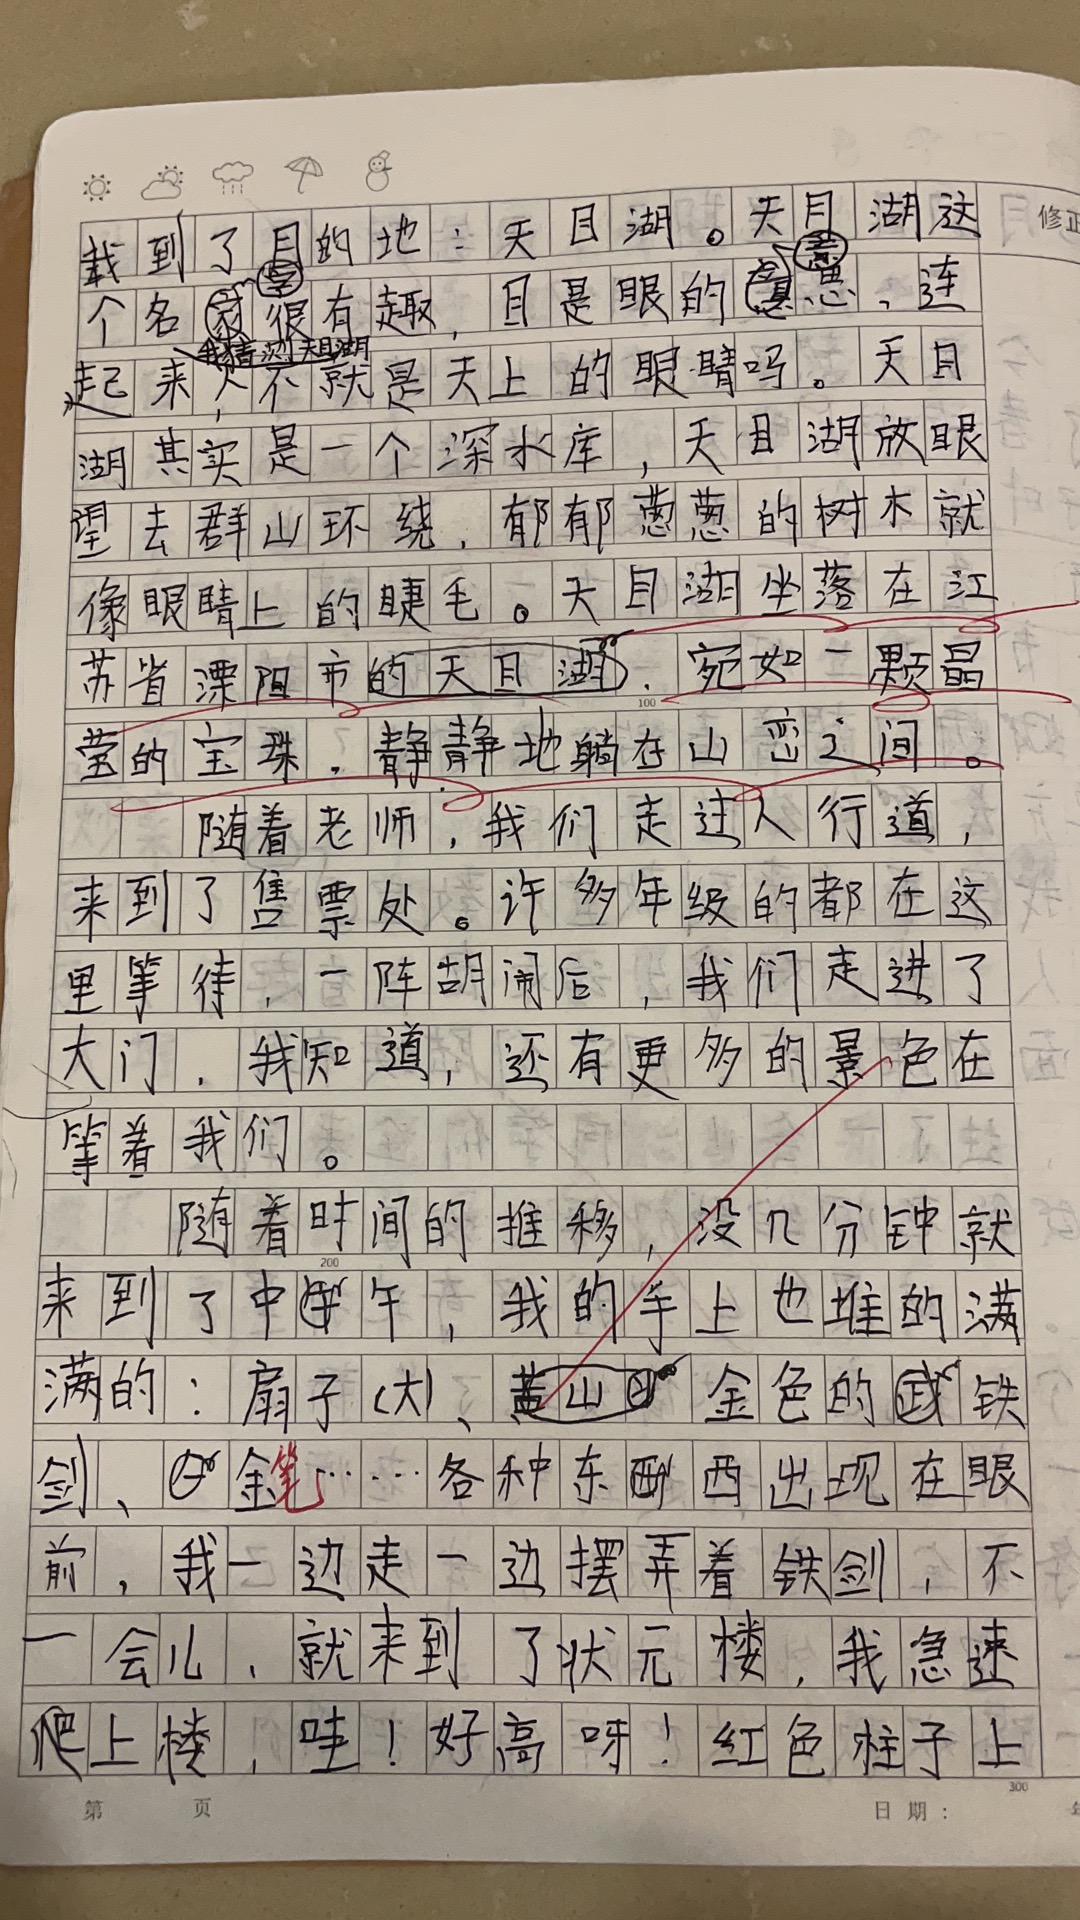 载到了目的地：天目湖。天目湖这
个名字很有趣，目是眼的意思，连
起来，我猜测天目湖不就是天上的眼睛吗。天目
湖其实是一个深水库，天目湖放眼
望去群山环绕，郁郁葱葱的树木就
像眼睛上的睫毛。天目湖坐落在江
苏省溧阳市的天目湖，宛如一颗晶
莹的宝珠，静静地躺在山峦之间。
随着老师，我们走过人行道，
来到了售票处。许多年级的都在这
里等待，一阵胡闹后，我们走进了
大门，我知道，还有更多的景色在
等着我们。
随着时间的推移，没几分钟就
来到了中午，我的手上也堆的满
满的：扇子（大）、金色的铁
剑、金笔……各种东西出现在眼
前，我一边走一边摆弄着铁剑，不
一会儿，就来到了状元楼，我急速
爬上楼，哇！好高呀！红色柱子上
修正
100
200
300
第 页
日期：
年